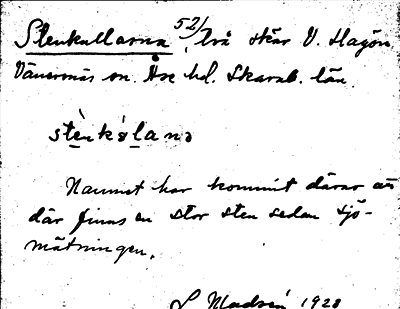 Stenkullarna 52/, två skär V. Hagön
Vänersnäs sn. Åse hd. Skarab. län.
stènkàlanə
Namnet har kommit därav att
där finns en stor sten sedan sjö-
mätningen.
1928